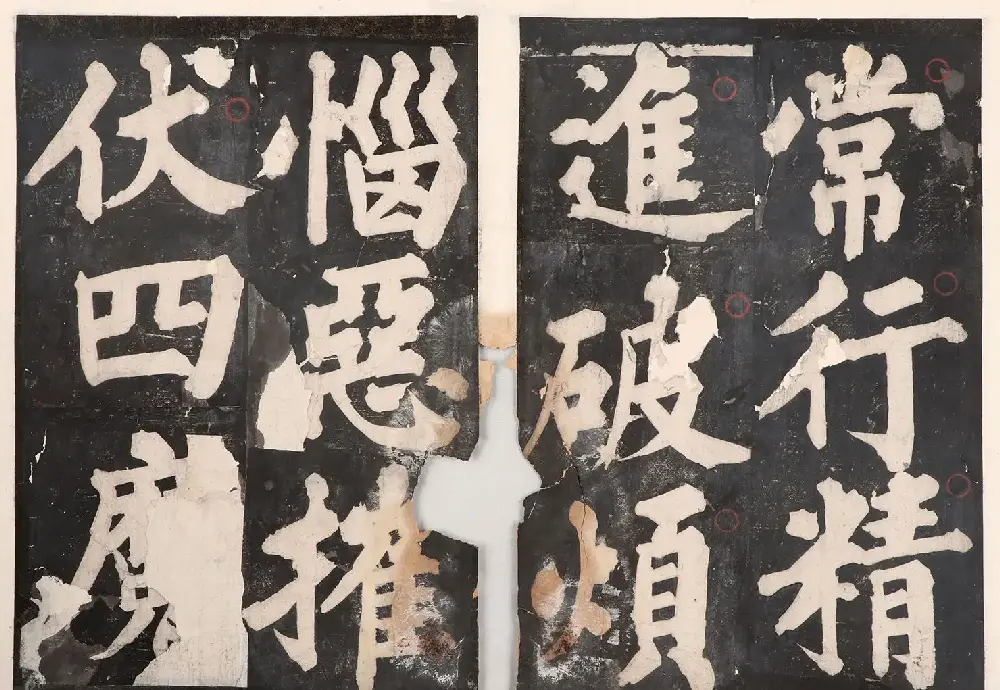 常行精
進破煩
惱惡摧
伏四魔